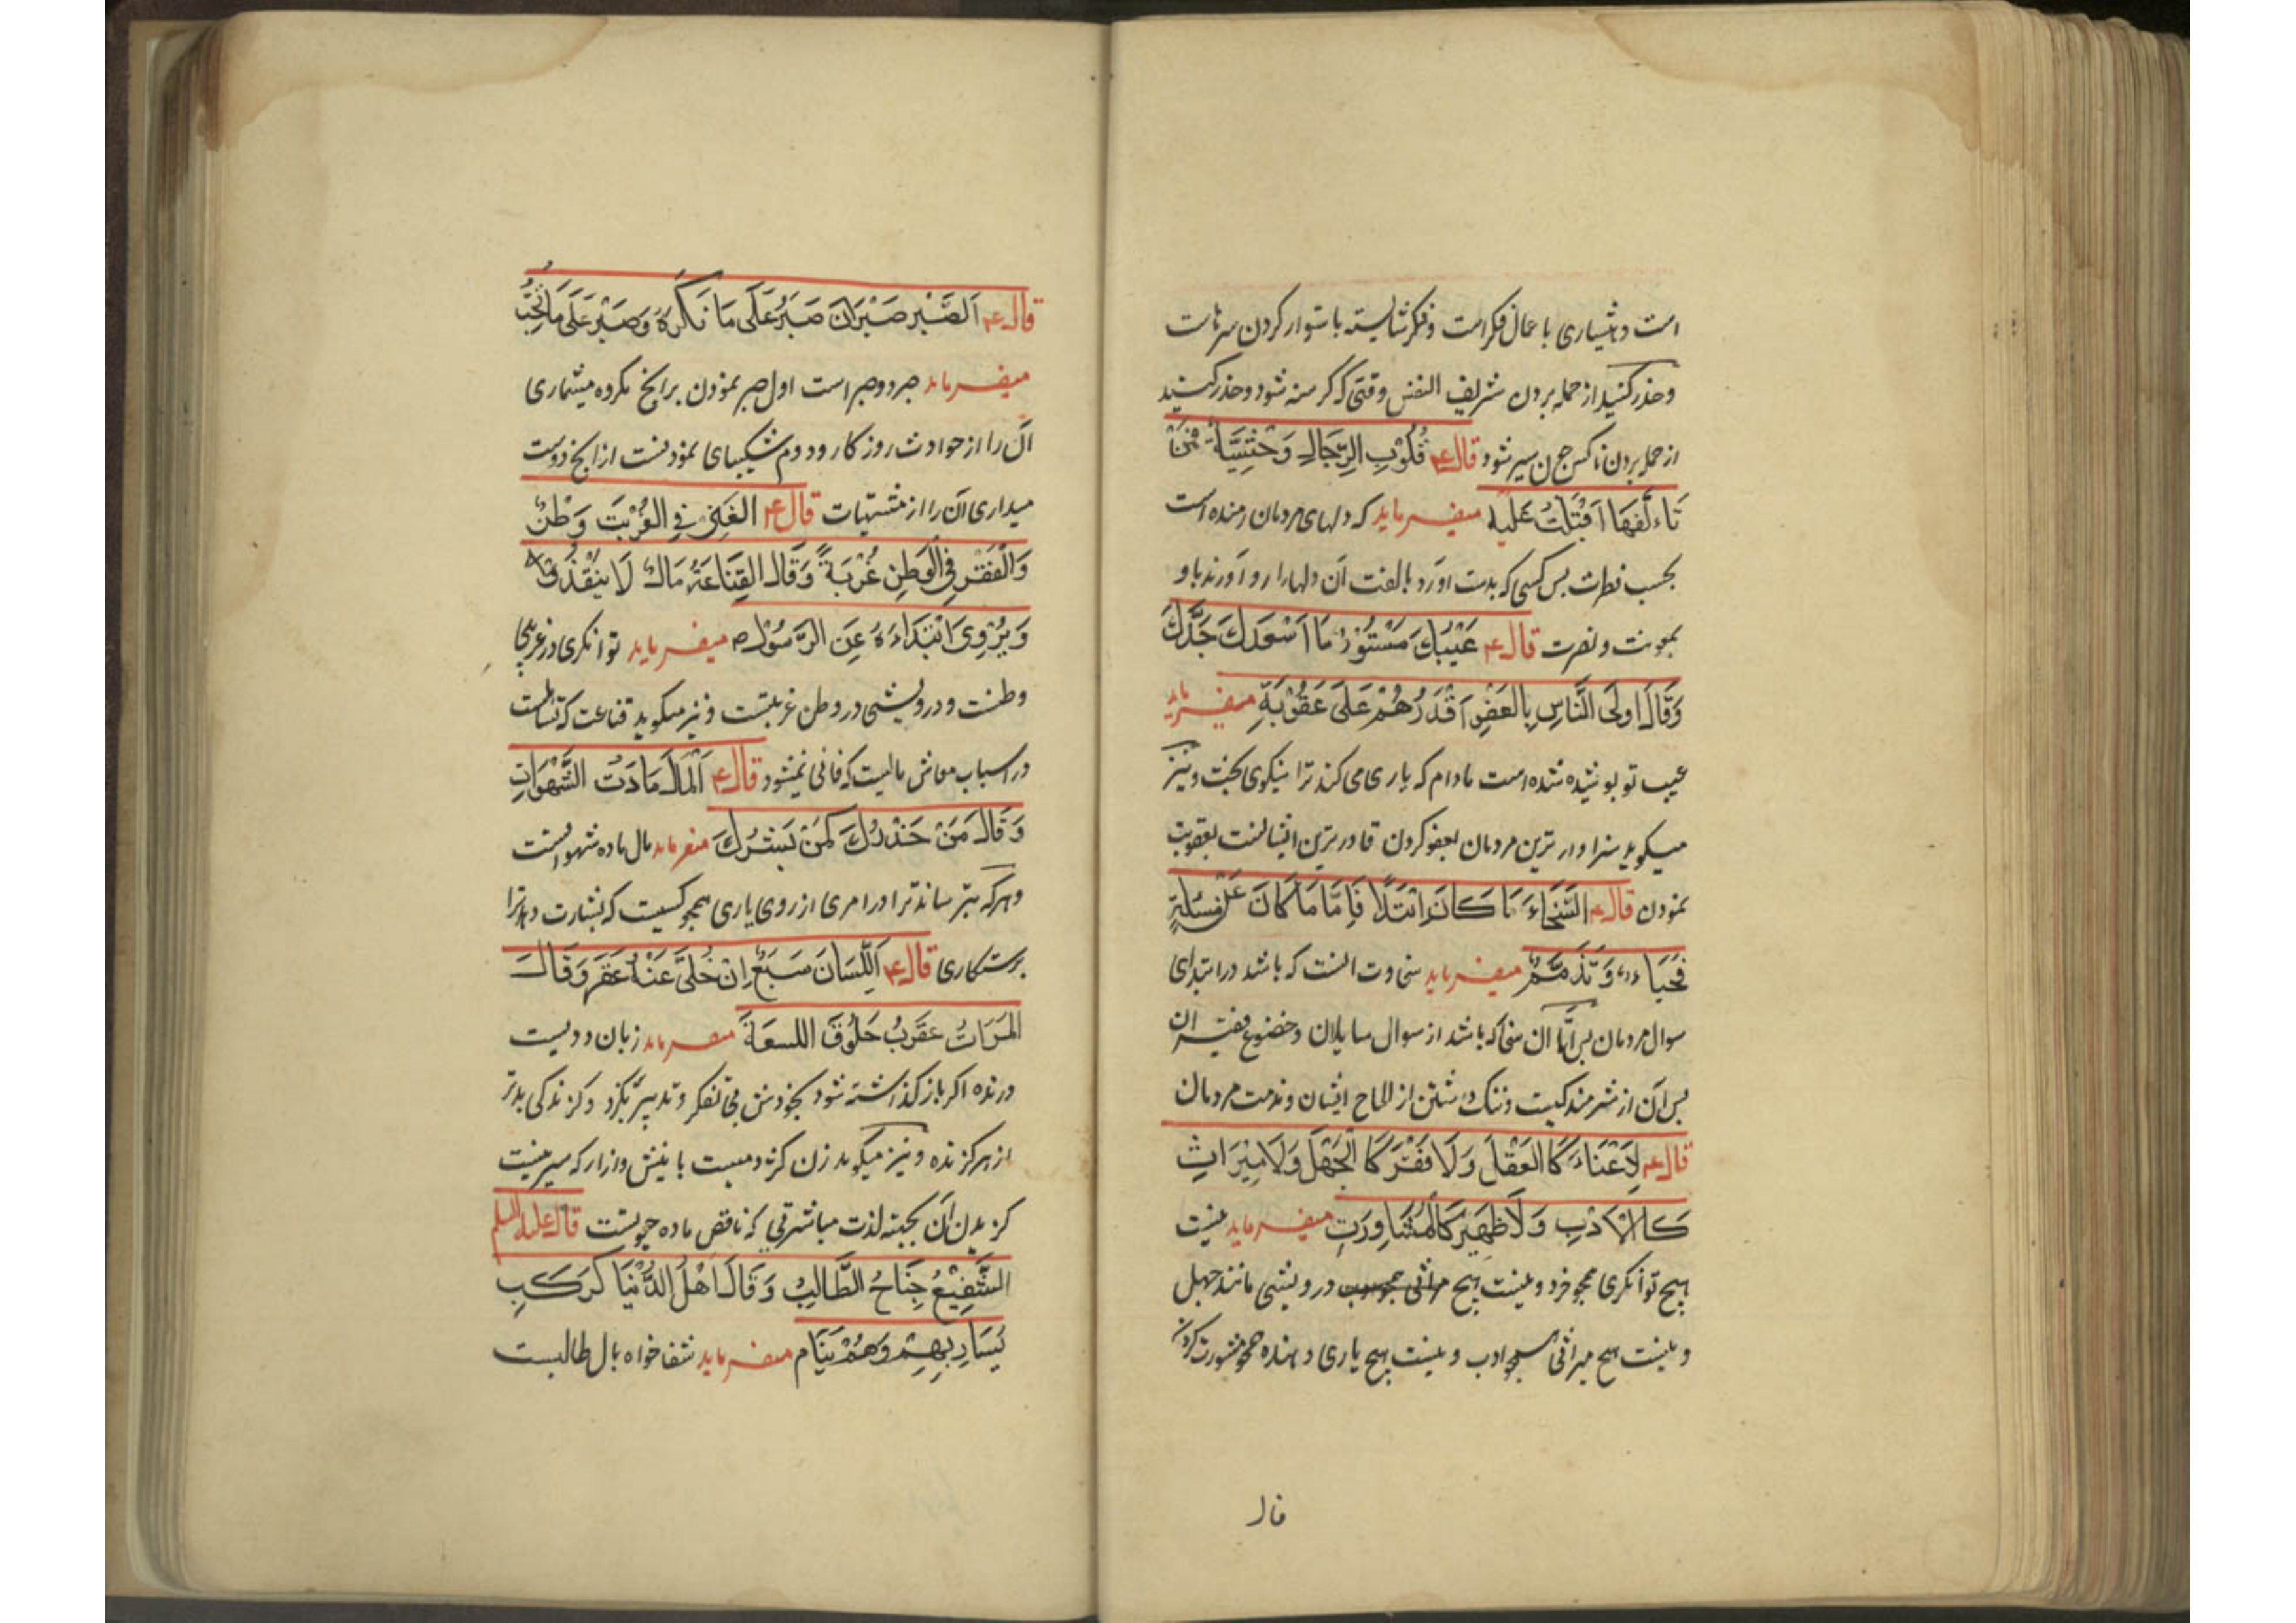 است و هشیاری با عمال فکر است و فکر شایسته باستوار کردن سرهاست
وحذر کنید از حمله بردن شریف النفس وقتی که گرسنه شود وحذر کنید
از حمله بردن ناکس چون سیر شود قال ع قُلُوْبِ الرِّجَالِ وَحْشِیَّةٌ فَمَنْ
تَاءَلَّفَهَا اَقْبَلَتْ عَلَیْهِ میفرماید که دلهای مردمان رمنده است
بحسب فطرت بس کسی که بدست اورد بالفت آن دلها را رو آورند باو
بمعونت و نصرت قال ع عَیْبُكَ مَسْتُوْرٌ مَا اَسْعَدَكَ جَدُّكَ
وَقَالَ اولَی النَّاسِ بِالعَفْوِ اَقْدَرُهُمْ عَلَی عَقُوْبَةِ میفرماید
عیب تو پوشیده شده است مادام که یاری می کند ترا نیکوی بخت و نیز
میکوید سزاوار ترین مردمان بعفو کردن قادر ترین ایشانست بعقوبت
نمودن قال ع السَّخَاءَ مَا كَانَ ابْتَدَاً فَاِمَّا مَا كَانَ عَنْ مسئلةٍ
فَحَیَاءٌ وَتَذَمُّمٌ میفرماید سخاوت انست که باشد در ابتدای
سوال مردمان بس امّا ان سخا که باشد از سوال سایلان و خضوع فقیران
بس آن از شرمندکیست و ننک داشتن از الحاح ایشان و مذمت مردمان
قال ع لَاغَنَاءَ كَا العَقْلَ وَلَا فَقْرَ كَا الْجَهْلَ وَلَا مِیْرَاثِ
كَا الاَدَبِ وَلَا ظَهِیْرَ كَالْمُشَاوِرَتِ میفرماید نیست
هیچ توانکری همچو خرد و نیست هیچ درویشی مانند جهل
و نیست هیچ میراثی همچو ادب و نیست هیچ یاری دهنده همچو مشورت کردن
قال
قال ع اَلصَّبْرِ صَبْرَانَ صَبَرٌ عَلَی مَا تَكْرَهُ وَصَبْرٌ عَلَی مَا تُحِبُّ
میفرماید صبر دو صبر است اول صبر نمودن برانچ مکروه میشماری
آن را از حوادث روزکار و دوم شکیبای نمودنست ازانچ دوست
میداری آن را از مشتهیات قال ع الغَنِیُ فِی الغُرْبَتَ وَطَنٌ
وَالْفَقْرِ فِی الْوَطَنِ غُرْبَةً وَقَالَ القِنَاعَةُ مَالٌ لَا یَنْقَدُ
وَیُرْوِیَ اَبْتَدَاءَهُ عِنَ الرَّسُوْلِ ص میفرماید توانکری در غریبی
وطنست و درویشی در وطن غربتست و نیز میکوید قناعت که تسلطست
در اسباب معاش مالیست که فانی نمیشود قال ع اَلْمَالَ مَادَتُ الشَّهْوَاتِ
وَقَالَ مَنْ حَذَّرَكَ كَمَنْ بَشَّرَكَ میفرماید مال ماده شهواتست
و هرکه بترساند ترا در امری از روی یاری همچو کسیست که بشارت دهد ترا
برستکاری قال ع اَللِّسَانَ سَبَعٌ اِنْ خُلِیَّ عَنْهُ عَقَرَ وَقَالَ
المَرَاتُ عَقَرَبُ حَلُوَقَ اللسعَةَ میفرماید زبان ددیست
درنده اکر باز کذاشته شود بخودش بی تفکر و تدبیر بکزد و کزندکی بدتر
از هر کزنده و نیز میکوید زن کژدمیست با نیش و ازار که سیر نیست
کزیدن آن بجبته لذت مباشرتی که ناقص ماده حیوتست قال علیه السلم
الشَّفِیْعُ جِنَاحُ الطَّالِبُ وَقَالَ اَهْلُ الدُّنْیَا كَرَكَبِ
یُسَارِ بِهِمْ وَهُمْ نِیَام میفرماید شفاخواه بال طالبست